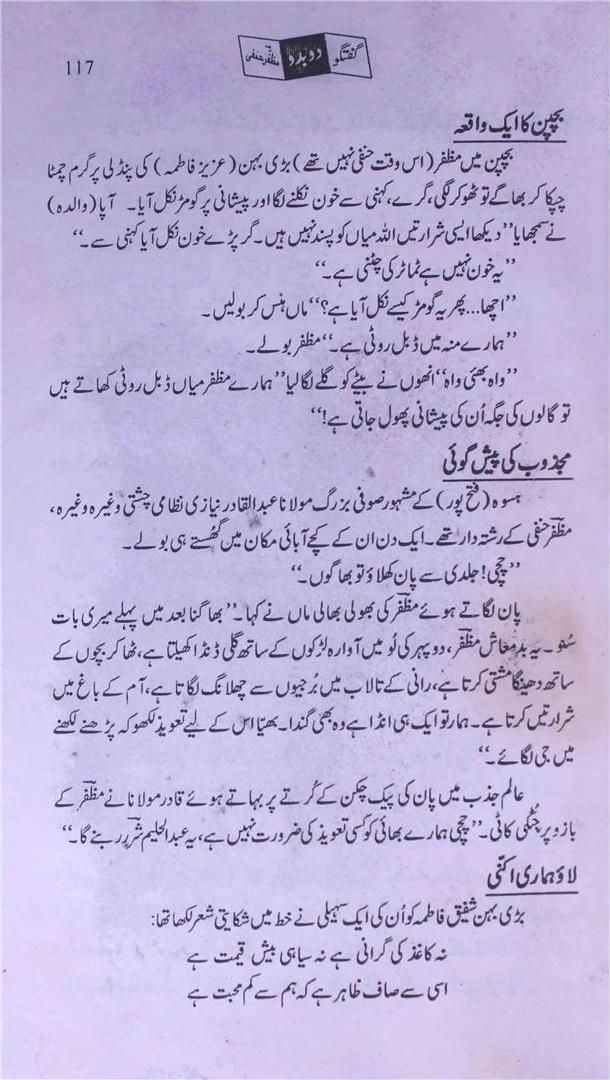 117
گفتگو دوبدو مظفر حنفی
بچپن کا ایک واقعہ
بچپن میں مظفر (اس وقت حنفی نہیں تھے) بڑی بہن (عزیز فاطمہ) کی پنڈلی پر گرم چمٹا
چپکا کر بھاگے تو ٹھوکر لگی، گرے، کہنی سے خون نکلنے لگا اور پیشانی پر گومڑ نکل آیا۔ آپا (والدہ)
نے سمجھایا ”دیکھا ایسی شرارتیں اللہ میاں کو پسند نہیں ہیں۔ گر پڑے خون نکل آیا کہنی سے۔“
”یہ خون نہیں ہے ٹماٹر کی چٹنی ہے۔“
”اچھا... پھر یہ گومڑ کیسے نکل آیا ہے؟“ ماں ہنس کر بولیں۔
”ہمارے منہ میں ڈبل روٹی ہے۔“ مظفر بولے۔
”واہ بھئی واہ“ انھوں نے بیٹے کو گلے لگا لیا ”ہمارے مظفر میاں ڈبل روٹی کھاتے ہیں
تو گالوں کی جگہ اُن کی پیشانی پھول جاتی ہے!“
مجذوب کی پیش گوئی
ہسوہ (فتح پور) کے مشہور صوفی بزرگ مولانا عبدالقادر نیازی نظامی چشتی وغیرہ وغیرہ،
مظفرؔ حنفی کے رشتہ دار تھے۔ ایک دن ان کے کچے آبائی مکان میں گھستے ہی بولے۔
”چچی! جلدی سے پان کھلاؤ تو بھاگوں۔“
پان لگاتے ہوئے مظفرؔ کی بھولی بھالی ماں نے کہا۔ ”بھاگنا بعد میں پہلے میری بات
سُنو۔ یہ بدمعاش مظفرؔ، دوپہر کی لُو میں آوارہ لڑکوں کے ساتھ گلی ڈنڈا کھیلتا ہے، ٹھاکر بچوں کے
ساتھ دھینگا مشتی کرتا ہے، رانی کے تالاب میں بُرجیوں سے چھلانگ لگاتا ہے، آم کے باغ میں
شرارتیں کرتا ہے۔ ہمارتو ایک ہی انڈا ہے وہ بھی گندا۔ بھیّا اس کے لیے تعویذ لکھو کہ پڑھنے لکھنے
میں جی لگائے۔“
عالم جذب میں پان کی پیک چکن کے کُرتے پر بہاتے ہوئے قادر مولانا نے مظفرؔ کے
بازو پر چٹکی کاٹی۔ ”چچی ہمارے بھائی کو کسی تعویذ کی ضرورت نہیں ہے، یہ عبدالحلیم شررؔ بنے گا۔“
لاؤ ہماری اکنّی
بڑی بہن شفیق فاطمہ کو اُن کی ایک سہیلی نے خط میں شکایتی شعر لکھا تھا:
نہ کاغذ کی گرانی ہے نہ سیاہی بیش قیمت ہے
اسی سے صاف ظاہر ہے کہ ہم سے کم محبت ہے